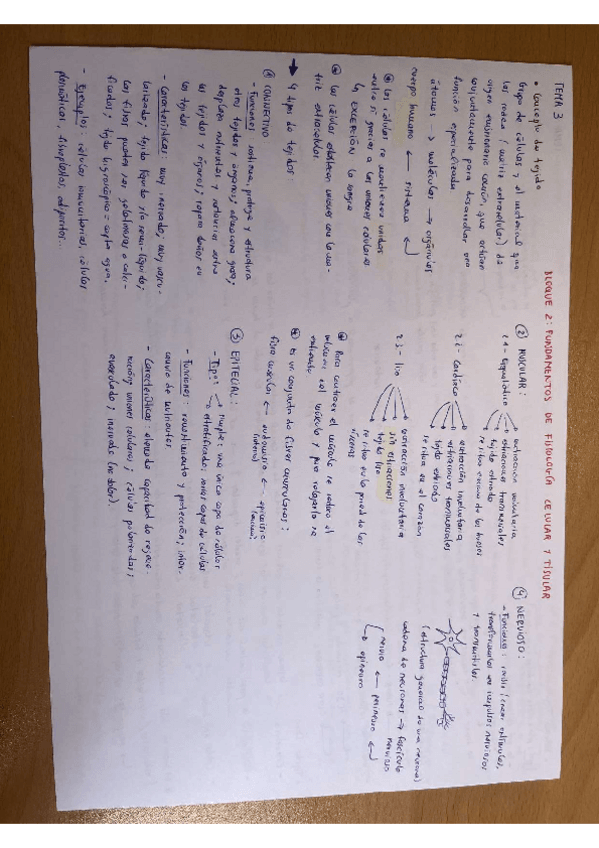 TEMA 3
BLOQUE 2: FUNDAMENTOS DE FISIOLOGÍA CELULAR Y TISULAR
• Concepto de tejido
Grupo de células y el material que
las rodea (matriz extracelular) de
origen embrionario común, que actúan
conjuntamente para desarrollar una
función especializada
átomos → moléculas → orgánulos
cuerpo humano ← sistema ←
las células se mantienen unidas
entre sí gracias a las uniones celulares
EXCEPCIÓN la sangre
las células establecen uniones con la ma-
triz extracelular.
→ 4 tipos de tejidos:
① CONJUNTIVO
- Funciones: sostiene, protege y estructura
otros tejidos y órganos; almacena grasa;
desplaza nutrientes y sustancias entre
los tejidos y órganos; repara daños en
los tejidos.
- Características: muy inervado; muy vascu-
larizado; tejido líquido y/o semi-líquido;
las fibras pueden ser gelatinosas o calci-
ficadas; tejido higroscópico = capta agua.
- Ejemplo: células inmunitarias, células
plasmáticas, fibroblastos, adipocitos...
② MUSCULAR:
2.1- Esquelético
contracción voluntaria
estriaciones transversales
tejido estriado
se ubica encima de los huesos
2.2- Cardíaco
contracción involuntaria
estriaciones transversales
tejido estriado
se ubica en el corazón
2.3- liso
contracción involuntaria
sin estriaciones
tejido liso
se ubica en la pared de las
vísceras
Para contraer el músculo se reduce el
volumen del músculo y para relajarlo se
Es un conjunto de fibras musculares:
fibra muscular ← endomisio ← epimisio
③ EPITELIAL:
- Tipos
simple: una única capa de células
estratificado: varias capas de células
- Funciones: revestimiento y protección; inter-
cambio de nutrientes.
- Características: elevada capacidad de regene-
ración; uniones celulares; células polarizadas;
avascularizado; inervado (no todos).
④ NERVIOSO:
- Funciones: recibir/crear estímulos,
transformarlos en impulsos nerviosos
y transmitirlos.
(estructura general de una neurona)
cadena de neuronas → fascículo
nervioso
nervio ← perineuro ←
→ epineuro